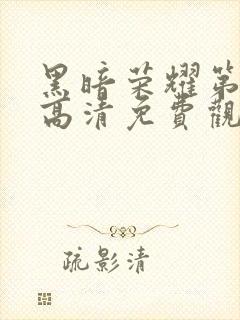 黑暗荣耀第
高清免費觀
疏影清